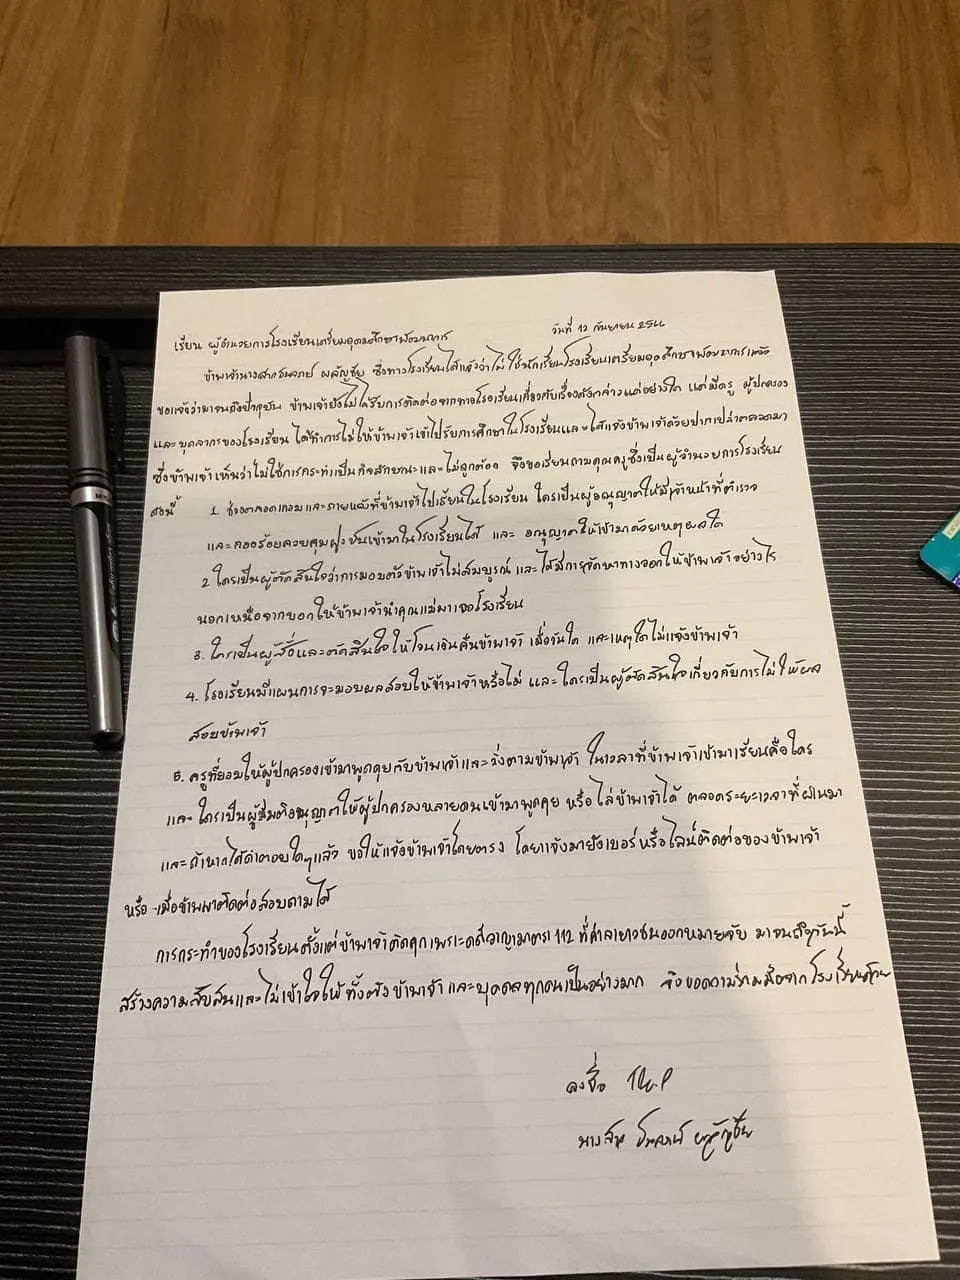 วันที่ 12 กันยายน 2566
เรียน ผู้อำนวยการโรงเรียนเตรียมอุดมศึกษาพัฒนาการ
ข้าพเจ้านางสาวธนลภย์ ผลัญชัย ซึ่งทางโรงเรียนได้แจ้งว่าไม่ใช่นักเรียนโรงเรียนเตรียมอุดมศึกษาพัฒนาการแล้ว
ขอแจ้งว่ามาจนถึงปัจจุบัน ข้าพเจ้ายังไม่ได้รับการติดต่อจากทางโรงเรียนเกี่ยวกับเรื่องดังกล่าวแต่อย่างใด แต่มีครู ผู้ปกครอง
และบุคลากรของโรงเรียน ได้ทำการไม่ให้ข้าพเจ้าเข้าไปรับการศึกษาในโรงเรียนและได้แจ้งข้าพเจ้าด้วยปากเปล่าตลอดมา
ซึ่งข้าพเจ้าเห็นว่าไม่ใช่การกระทำเป็นกิจลักษณะและไม่ถูกต้อง จึงขอเรียนถามคุณครูซึ่งเป็นผู้อำนวยการโรงเรียน
ดังนี้ 1. ช่วงตลอดเทอมและภายหลังที่ข้าพเจ้าไปเรียนในโรงเรียน ใครเป็นผู้อนุญาตให้มีเจ้าหน้าที่ตำรวจ
และกองร้อยควบคุมฝูงชนเข้ามาในโรงเรียนได้ และ อนุญาตให้เข้ามาด้วยเหตุผลใด
2. ใครเป็นผู้ตัดสินใจว่าการมอบตัวข้าพเจ้าไม่สมบูรณ์ และได้มีการจัดหาทางออกให้ข้าพเจ้าอย่างไร
นอกเหนือจากบอกให้ข้าพเจ้านำคุณแม่มาเจอโรงเรียน
3. ใครเป็นผู้สั่งและตัดสินใจให้โอนเงินคืนข้าพเจ้า เมื่อวันใด และเหตุใดไม่แจ้งข้าพเจ้า
4. โรงเรียนมีแผนการจะมอบผลสอบให้ข้าพเจ้าหรือไม่ และใครเป็นผู้ตัดสินใจเกี่ยวกับการไม่ให้ผล
สอบข้าพเจ้า
5. ครูที่ยอมให้ผู้ปกครองเข้ามาพูดคุยกับข้าพเจ้าและวิ่งตามข้าพเจ้า ในเวลาที่ข้าพเจ้าเข้ามาเรียนคือใคร
และใครเป็นผู้อนุญาตให้ผู้ปกครองหลายคนเข้ามาพูดคุย หรือไล่ข้าพเจ้าได้ ตลอดระยะเวลาที่ผ่านมา
และถ้าหากได้คำตอบใดๆแล้ว ขอให้แจ้งข้าพเจ้าโดยตรง โดยแจ้งมายังเบอร์หรือไลน์ติดต่อของข้าพเจ้า
หรือเมื่อข้าพเจ้าติดต่อสอบถามได้
การกระทำของโรงเรียนตั้งแต่ข้าพเจ้าติดคุกเพราะคดีอาญามาตรา 112 ที่ศาลเยาวชนออกหมายขัง มาจนถึงวันนี้
สร้างความสับสนและไม่เข้าใจให้ทั้งตัวข้าพเจ้าและบุคคลทุกคนเป็นอย่างมาก จึงขอความร่วมมือจากโรงเรียนด้วย
ลงชื่อ
นางสาวธนลภย์ ผลัญชัย